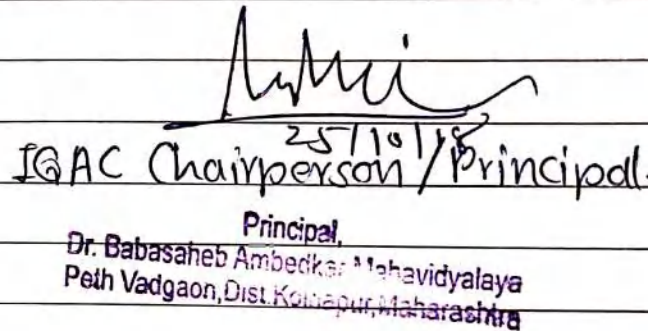 25/10/18
IQAC Chairperson / Principal.
Principal,
Dr. Babasaheb Ambedkar Mahavidyalaya
Peth Vadgaon, Dist. Kolhapur, Maharashtra